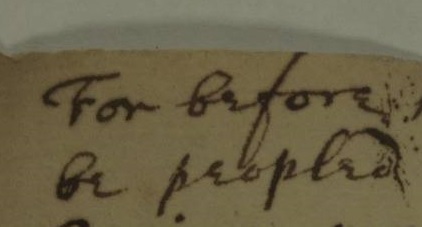 For before
be peopled